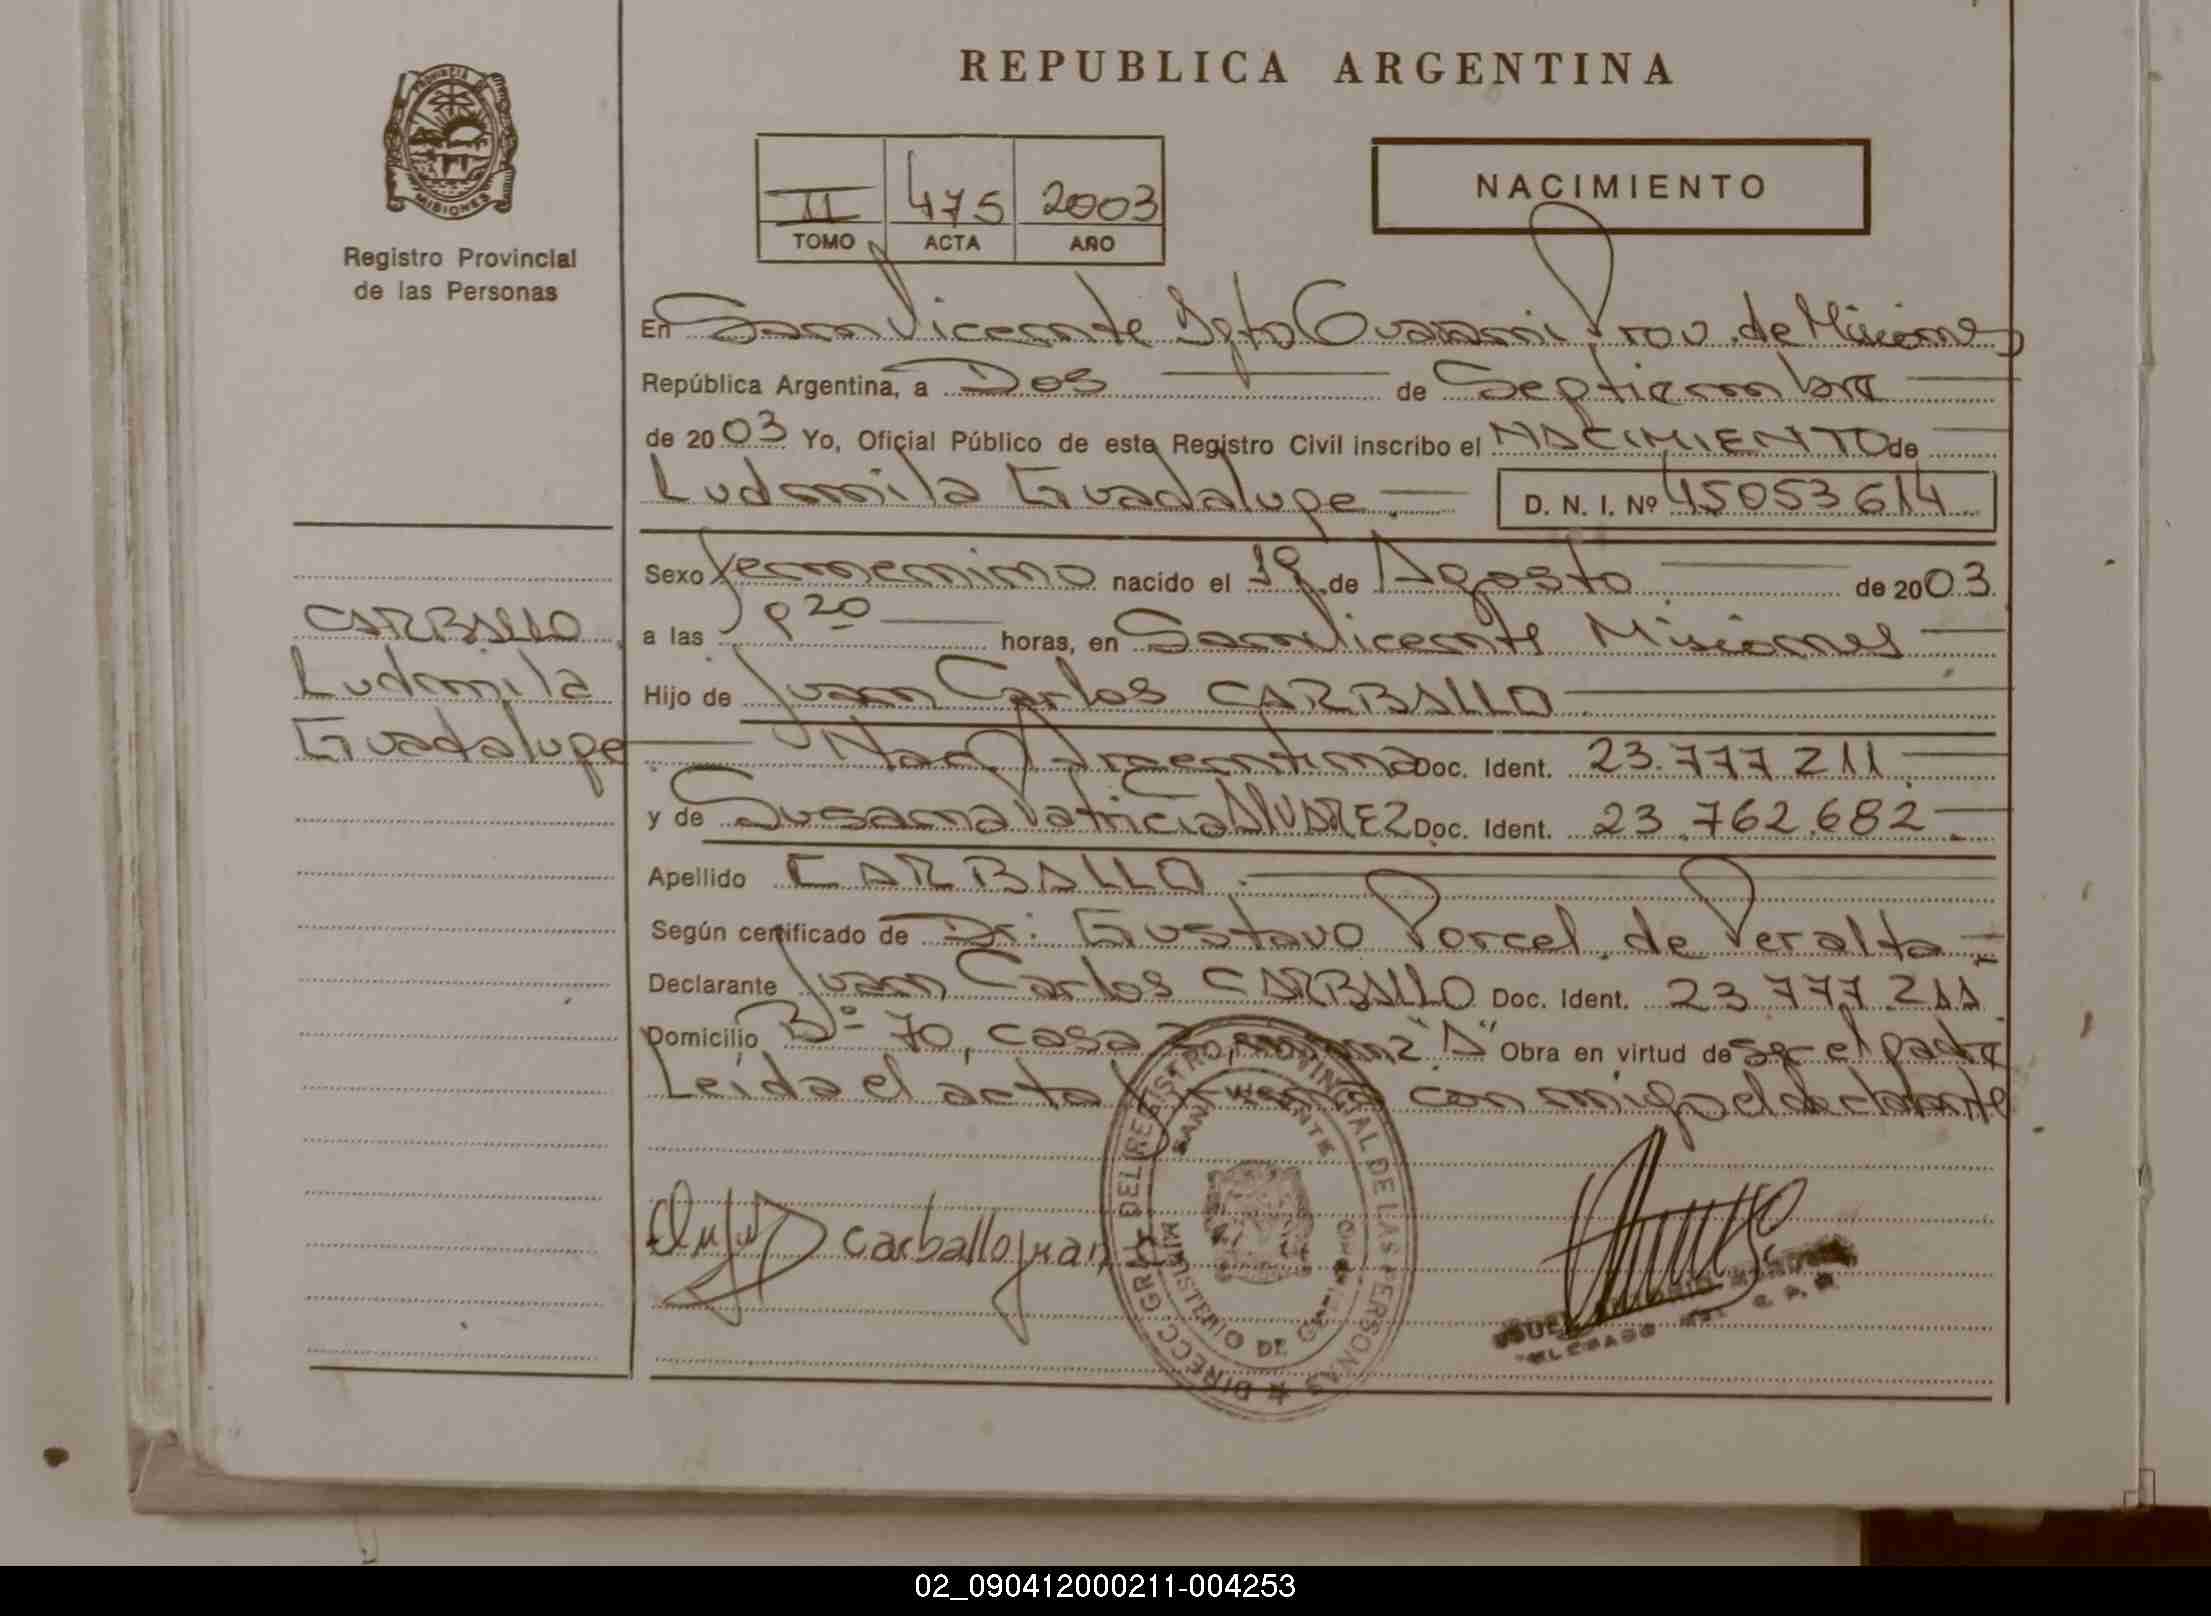 REPUBLICA ARGENTINA
PROVINCIA DE
MISIONES
Registro Provincial
de las Personas
II 475 2003
TOMO ACTA AÑO
NACIMIENTO
En San Vicente Dpto Guarani Prov. de Misiones
República Argentina, a Dos de Septiembre
de 2003 Yo, Oficial Público de este Registro Civil inscribo el NACIMIENTO de
Ludmila Guadalupe.
D. N. I. Nº 45053614
Sexo femenino nacido el 19 de Agosto de 2003
a las 20 horas, en San Vicente Misiones
Hijo de Juan Carlos CARBALLO
Nac. Argentina Doc. Ident. 23.777 211
y de Susana Patricia ALVAREZ Doc. Ident. 23.762.682
Apellido CARBALLO
Según certificado de Dr. Gustavo Porcel de Peralta
Declarante Juan Carlos CARBALLO Doc. Ident. 23 777 211
Domicilio Bº 70, casa "A" Obra en virtud de ser el padre
Leida el acta firma con migo el declarante
CARBALLO
Ludmila
Guadalupe
Carballo Juan
DIRECC. GRAL. DEL REGISTRO PROVINCIAL DE LAS PERSONAS
SAN VICENTE
MINISTERIO DE GOBIERNO
02_090412000211-004253